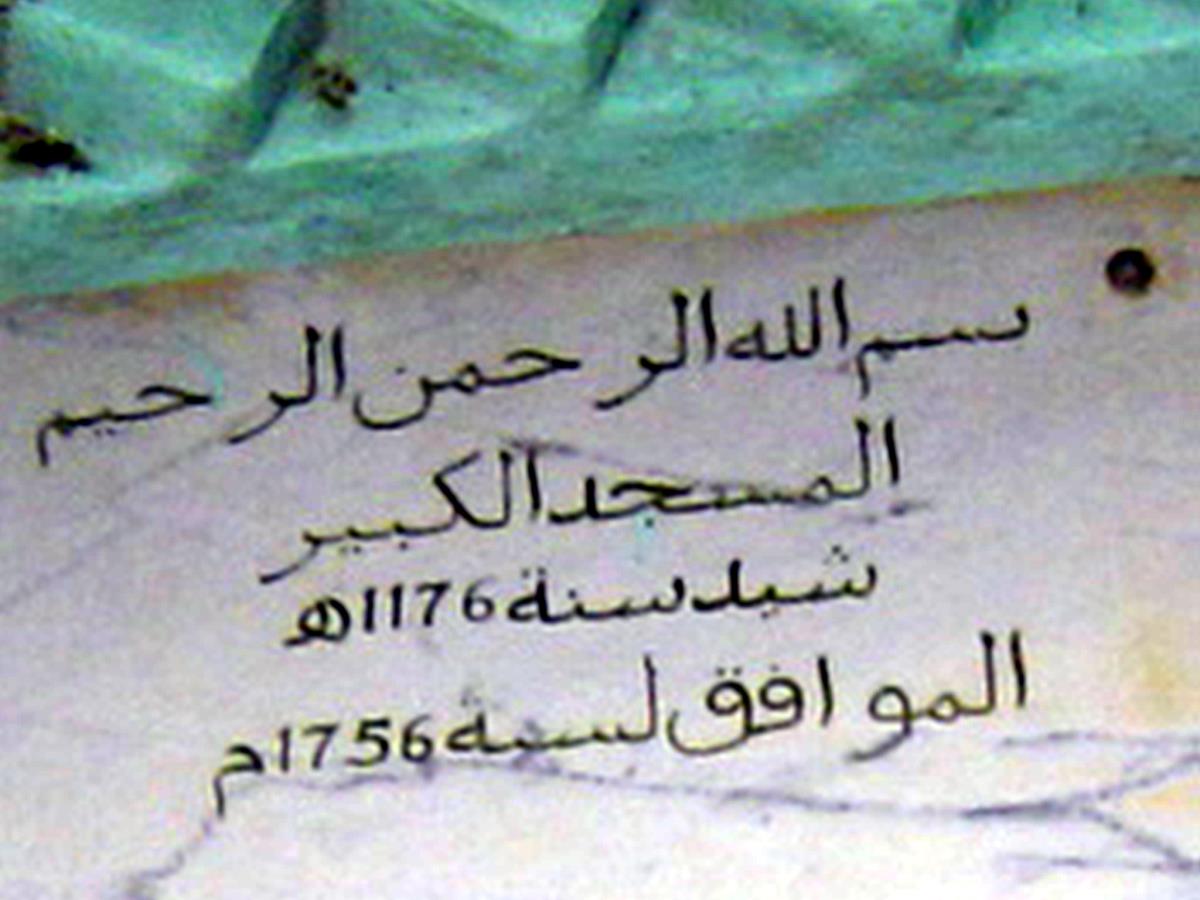 بسم الله الرحمن الرحيم
المسجد الكبير
شيد سنة 1176ه
الموافق لسنة 1756م